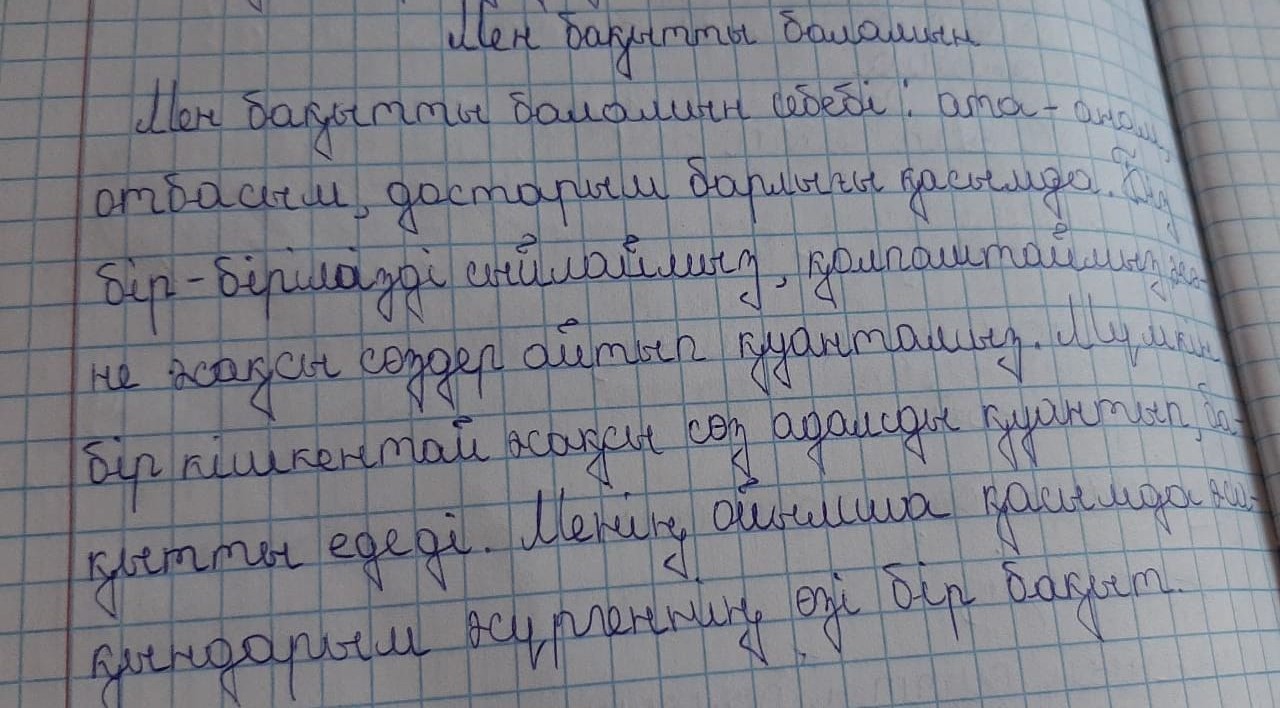 Мен бақытты баламын
Мен бақытты баламын себебі: ата-анам,
отбасым, достарым барлығы қасымда. Біз
бір-бірімізді сыйлаймыз, қолпаштаймыз жә-
не жақсы сөздер айтып қуантамыз. Мүмкін
бір кішкентай жақсы сөз адамды қуантып, ба-
қытты едеді. Менің ойымша қасымда жа-
қындарым жүргеннің өзі бір бақыт.